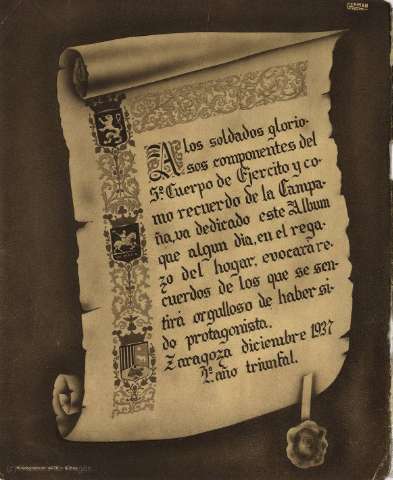 GERMAN
A los soldados glorio-
sos componentes del
5º Cuerpo de Ejercito y co-
mo recuerdo de la Campa-
ña, va dedicado este Album
que algun dia, en el rega-
zo del hogar, evocará re-
cuerdos de los que se sen-
tirá orgulloso de haber si-
do protagonista.
Zaragoza diciembre 1937
2º año triunfal.